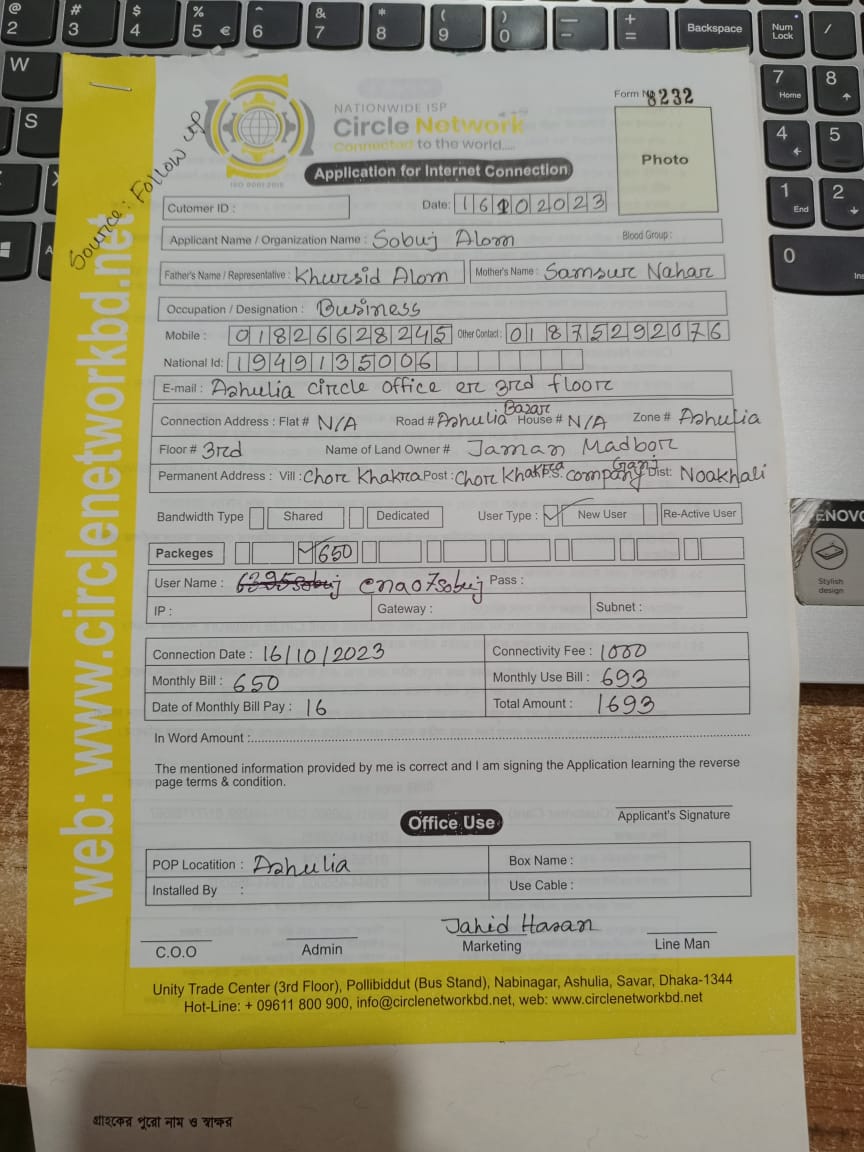 Source: Follow up
NATIONWIDE ISP
Circle Network
Connected to the world.....
ISO 9001:2015
Form No 8232
Photo
Application for Internet Connection
Cutomer ID :
Date: 16102023
Applicant Name / Organization Name : Sobuj Alom Blood Group :
Father's Name / Representative : Khursid Alom Mother's Name : Samsur Nahar
Occupation / Designation : Business
Mobile : 01826628245 Other Contact : 01875292076
National Id: 1949135006
E-mail : Ashulia circle office er 3rd floor
Connection Address : Flat # N/A Road # Ashulia Bazar House # N/A Zone # Ashulia
Floor # 3rd Name of Land Owner # Jaman Madbor
Permanent Address : Vill : Chor Khakra Post : Chor Khakra P.S. company Ganj Dist: Noakhali
Bandwidth Type Shared Dedicated User Type : New User Re-Active User
Packeges 650
User Name : cna07sobuj Pass :
IP : Gateway : Subnet :
Connection Date : 16/10/2023 Connectivity Fee : 1000
Monthly Bill : 650 Monthly Use Bill : 693
Date of Monthly Bill Pay : 16 Total Amount : 1693
In Word Amount :
The mentioned information provided by me is correct and I am signing the Application learning the reverse
page terms & condition.
Applicant's Signature
Office Use
POP Locatition : Ashulia Box Name :
Installed By : Use Cable :
Jahid Hasan
C.O.O Admin Marketing Line Man
Unity Trade Center (3rd Floor), Pollibiddut (Bus Stand), Nabinagar, Ashulia, Savar, Dhaka-1344
Hot-Line: + 09611 800 900, info@circlenetworkbd.net, web: www.circlenetworkbd.net
web: www.circlenetworkbd.net
গ্রাহকের পুরো নাম ও স্বাক্ষর
@ 2
# 3
$ 4
% 5 €
^ 6
& 7
* 8
( 9
) 0
+ =
Backspace
Num Lock
/
W
S
A
7 Home
8
4
5
1 End
2
0
Ins
LENOVO
Stylish
design